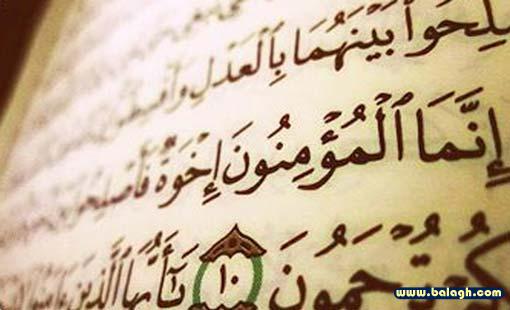 لِحُوا۟ بَيْنَهُمَا بِٱلْعَدْلِ وَأَقْسِطُوٓا۟
إِنَّمَا ٱلْمُؤْمِنُونَ إِخْوَةٌ فَأَصْلِحُوا۟
كُمْ تُرْحَمُونَ ١٠ يَٰٓأَيُّهَا ٱلَّذِينَ ءَامَنُوا۟
www.balagh.com